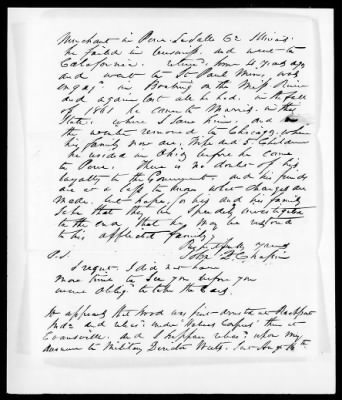 Merchant in Peru LaSalle Co Illinois
he failed in business, and went to
California. where some 4 years ago
and went to St Paul Minn, was
engag in, Boating on the Miss River
and again lost all he had. in the fall
of 1861 he came to Morris, in this
State. where I saw him. and in
the winter removed to Chicago, where
his family now are, Wife and 5 Children
he resided in Ohio before he came
to Peru. There is no doubt of his
loyalty to the Government, and his friends
are at a loss to know what charges are
made. but hope, for his and his family
Sake that they be Speedily investigated
to the end that he may be restored
to his afflicted family
Respectfully yours
John Chapin
P.S. I regret I did not have
more time to See you before you
were oblig to take the Cars.
It appears that Wood was first arrested at Rockport
Inda and under Habeas Corpus then at
Evansville. and I suppose upon my
to Military